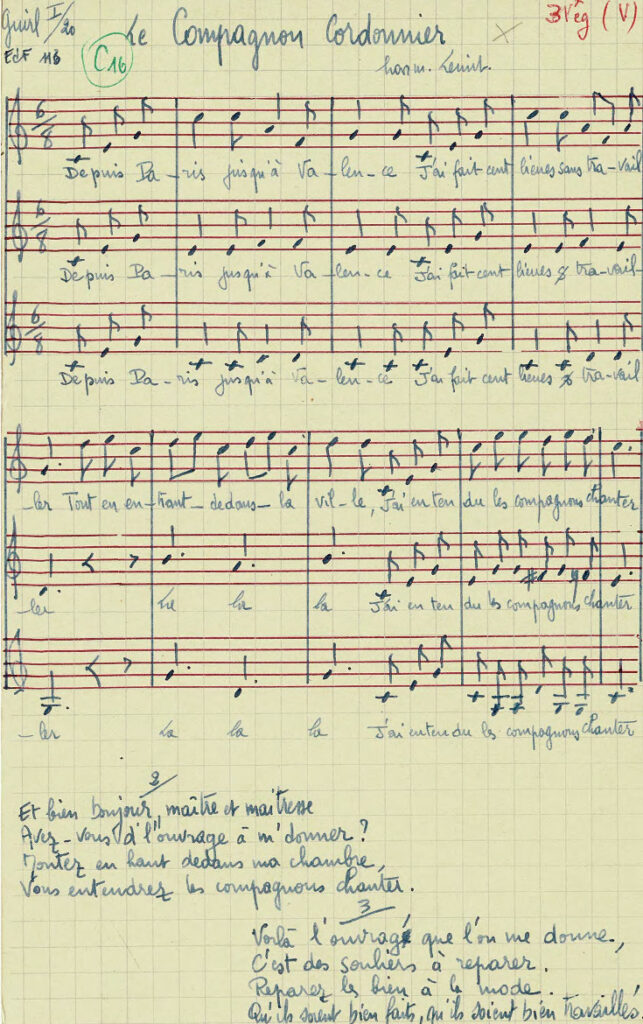 Guirl I/20
Le Compagnon Cordonnier
3 Vég (V)
EdF 113
C16
harm.
6/8
Depuis Pa-ris jusqu'à Va-len-ce J'ai fait cent lieues sans tra-vail
6/8
Depuis Pa-ris jusqu'à Va-len-ce J'ai fait cent lieues s tra-vail-
6/8
Depuis Pa-ris jusqu'à Va-len-ce J'ai fait cent lieues s tra-vail
-ler Tout en en-trant-dedans-la vil-le, J'ai enten du les compagnons chanter
-ler La la la J'ai en ten du les compagnons chanter
-ler La la la J'ai entendu les compagnons chanter
2
Et bien bonjour, maître et maitresse
Avez-vous d'l'ouvrage à m'donner?
Montez en haut dedans ma chambre,
Vous entendrez les compagnons chanter.
3
Voilà l'ouvrage que l'on me donne,
C'est des souliers à reparer.
Reparez les bien à la mode.
Qu'ils soient bien faits, qu'ils soient bien travaillés